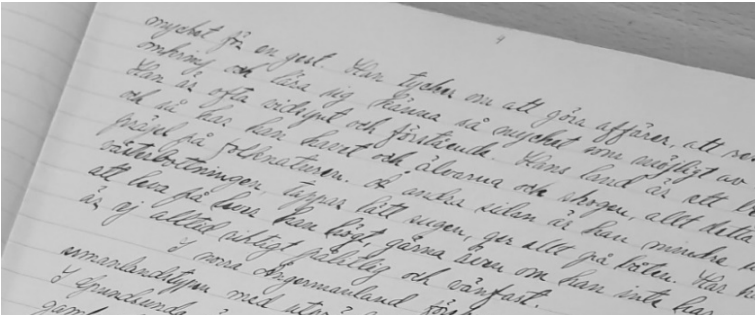 9
mycket för en gest. Han tycker om att göra affärer, att re
omkring och lära sig känna så mycket som möjligt av
Han är ofta vidsynt och förstående. Hans land är ett
och så har han havet och älvarna och skogen, allt detta
prägel på folknaturen. Å andra sidan är han mindre
västerbottningen, tappar lätt sugen, ger allt på båten. Har
att leva på, lever han högt, gärna även om han inte har
är ej alltid riktigt pålitlig och vänfast.
I norra Ångermanland förs
ermanlandtypen med
I Grundsunda
gaml